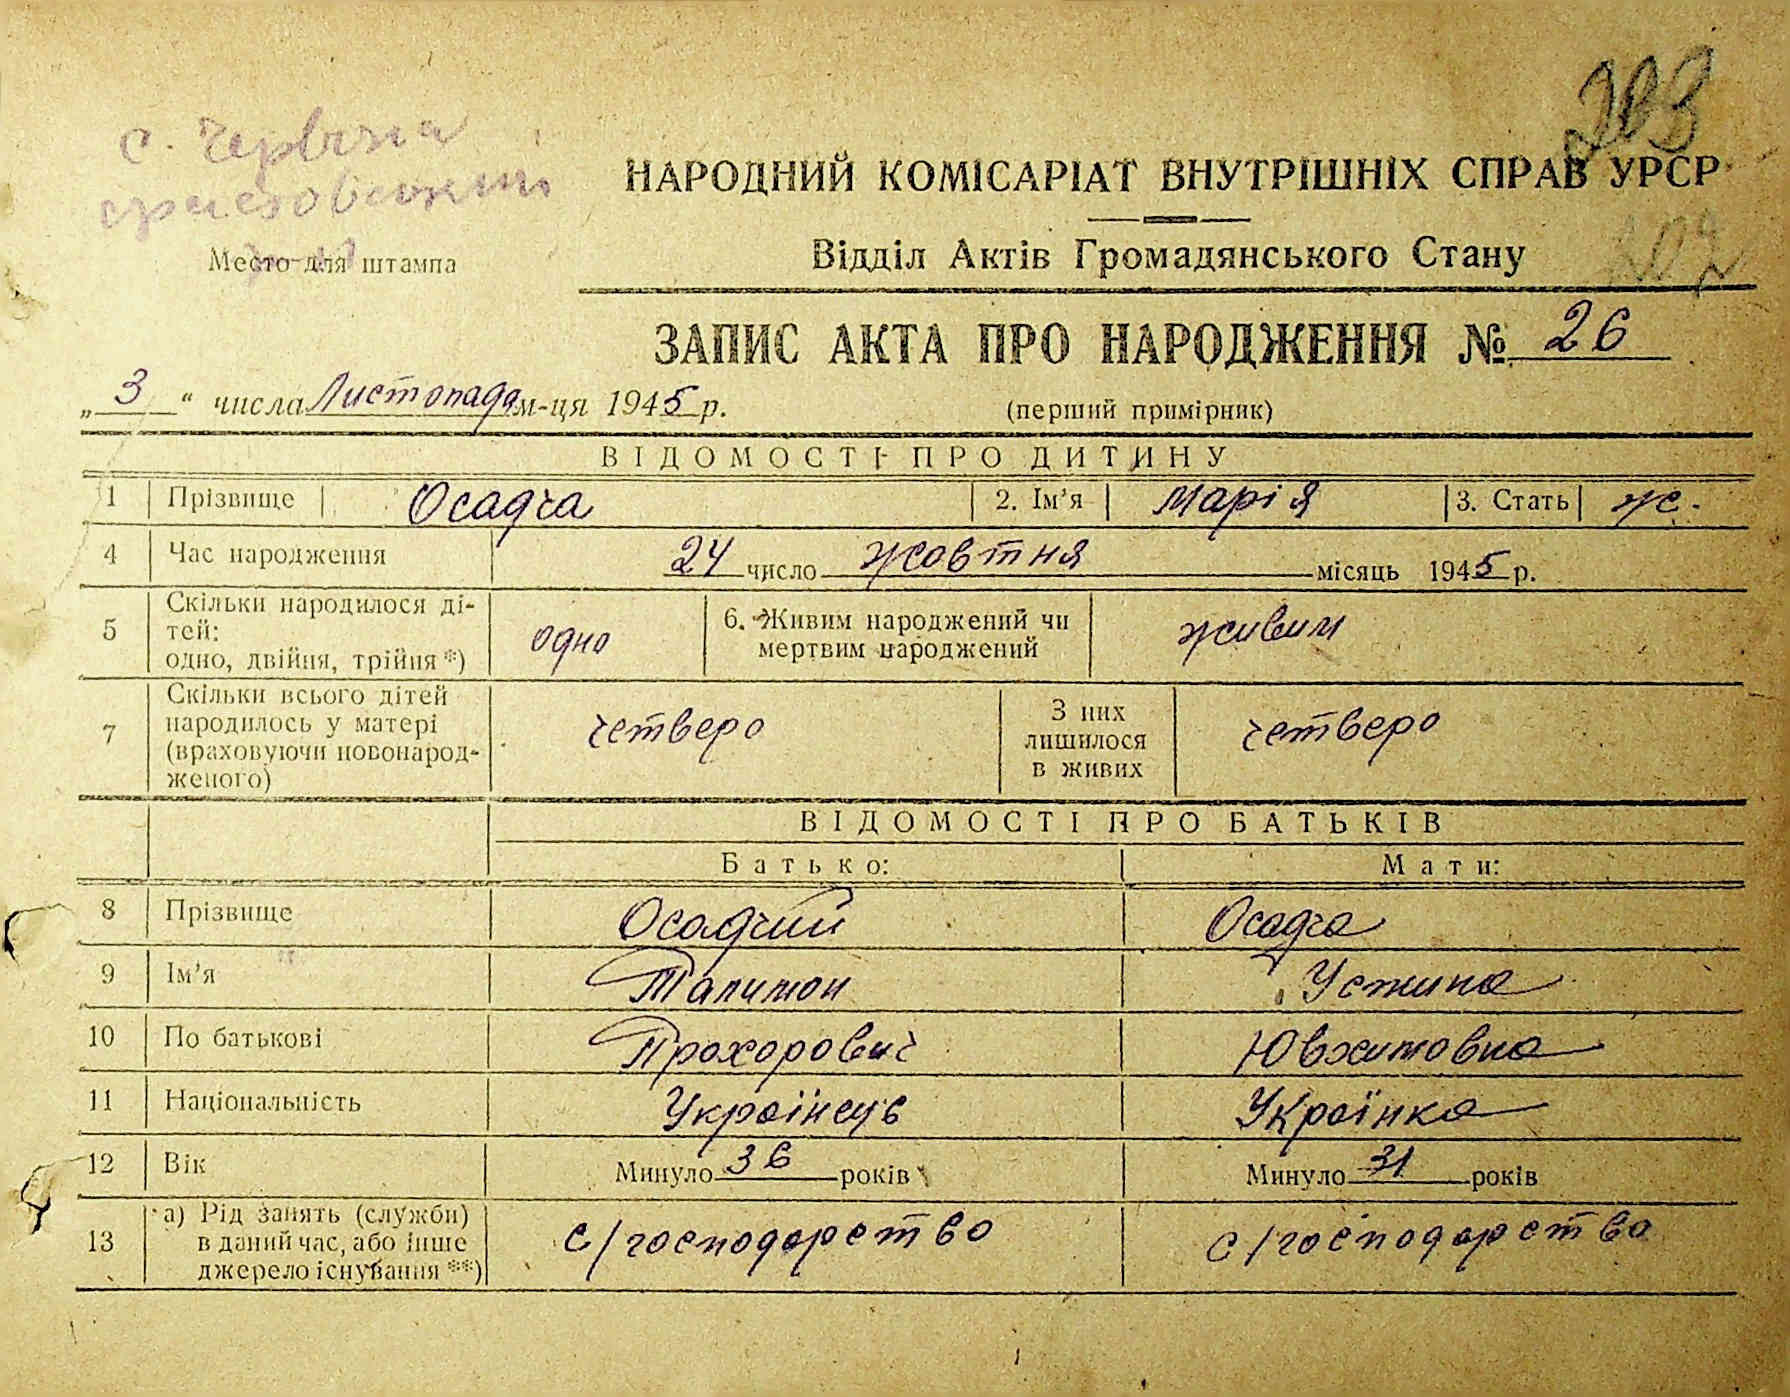 203
с. Червона
НАРОДНИЙ КОМІСАРІАТ ВНУТРІШНІХ СПРАВ УРСР
Відділ Актів Громадянського Стану
Место для штампа
ЗАПИС АКТА ПРО НАРОДЖЕННЯ № 26
„3“ числа Листопада м-ця 1945 р.
(перший примірник)
ВІДОМОСТІ ПРО ДИТИНУ
1 Прізвище Осадча 2. Ім'я Марія 3. Стать ж.
4 Час народження 24 число жовтня місяць 1945 р.
5 Скільки народилося ді-
тей:
одно, двійня, трійня *) одно
6. Живим народжений чи
мертвим народжений живим
7 Скільки всього дітей
народилось у матері
(враховуючи новонарод-
женого) четверо
З них
лишилося
в живих четверо
ВІДОМОСТІ ПРО БАТЬКІВ
Батько: Мати:
8 Прізвище Осадчий Осадча
9 Ім'я Тапимон Устина
10 По батькові Прохорович Ювхимовна
11 Національність Українець Українка
12 Вік Минуло 36 років Минуло 31 років
13 а) Рід занять (служби)
в даний час, або інше
джерело існування **) с/господарство с/господарство